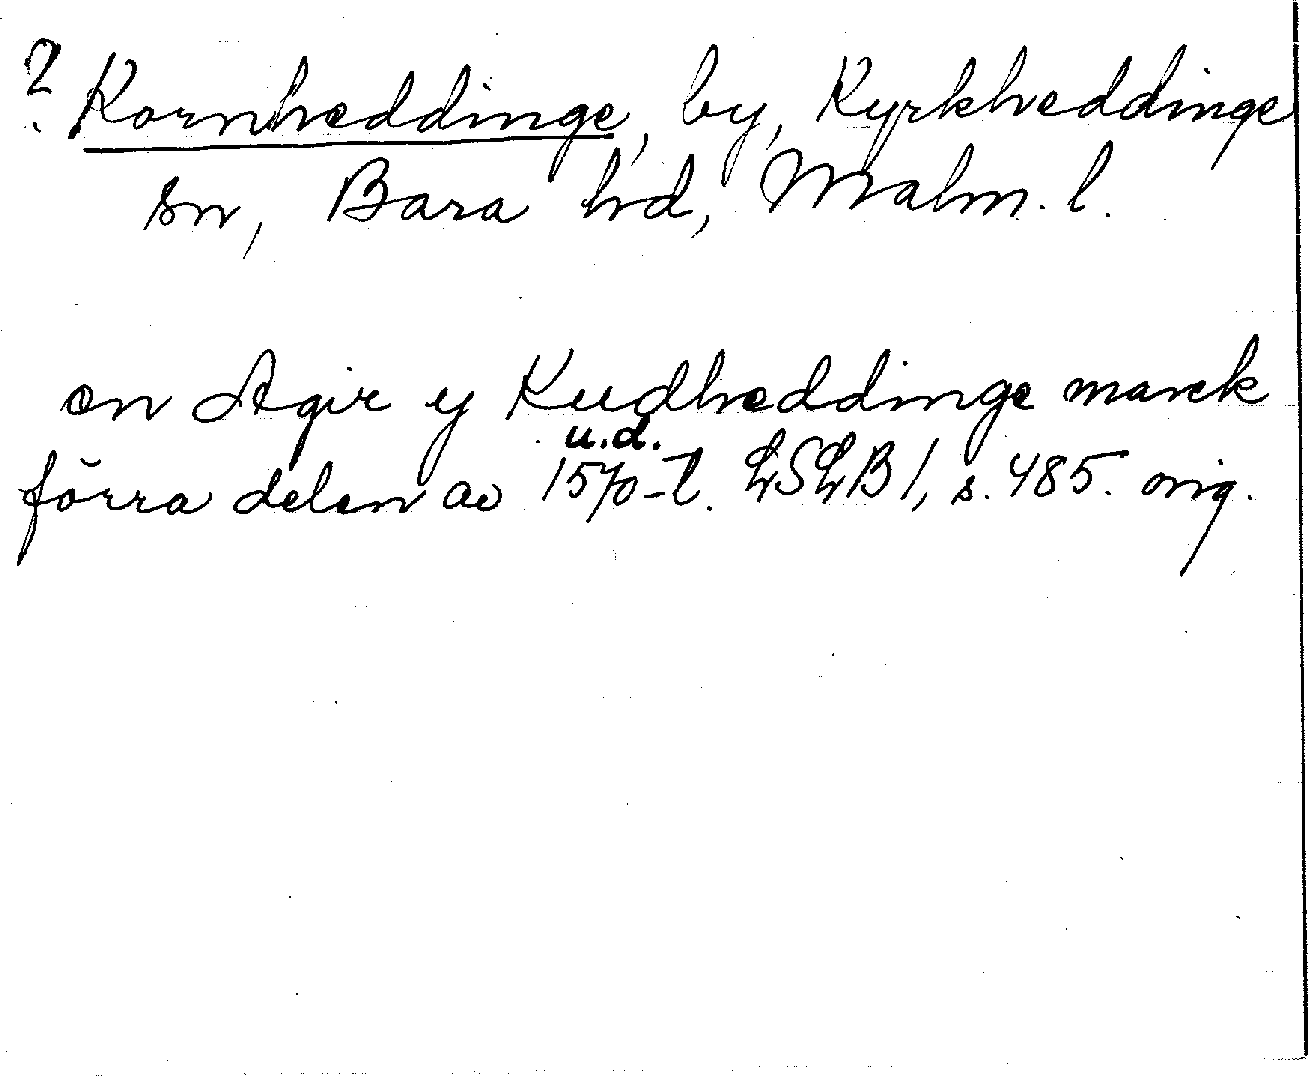 ? Kornheddinge, by, Kyrkheddinge
sn, Bara hd, Malm. l.
en Agir y Kudheddinge marck
u.d.
förra delen av 1570-t. LSLB 1, s. 485. orig.